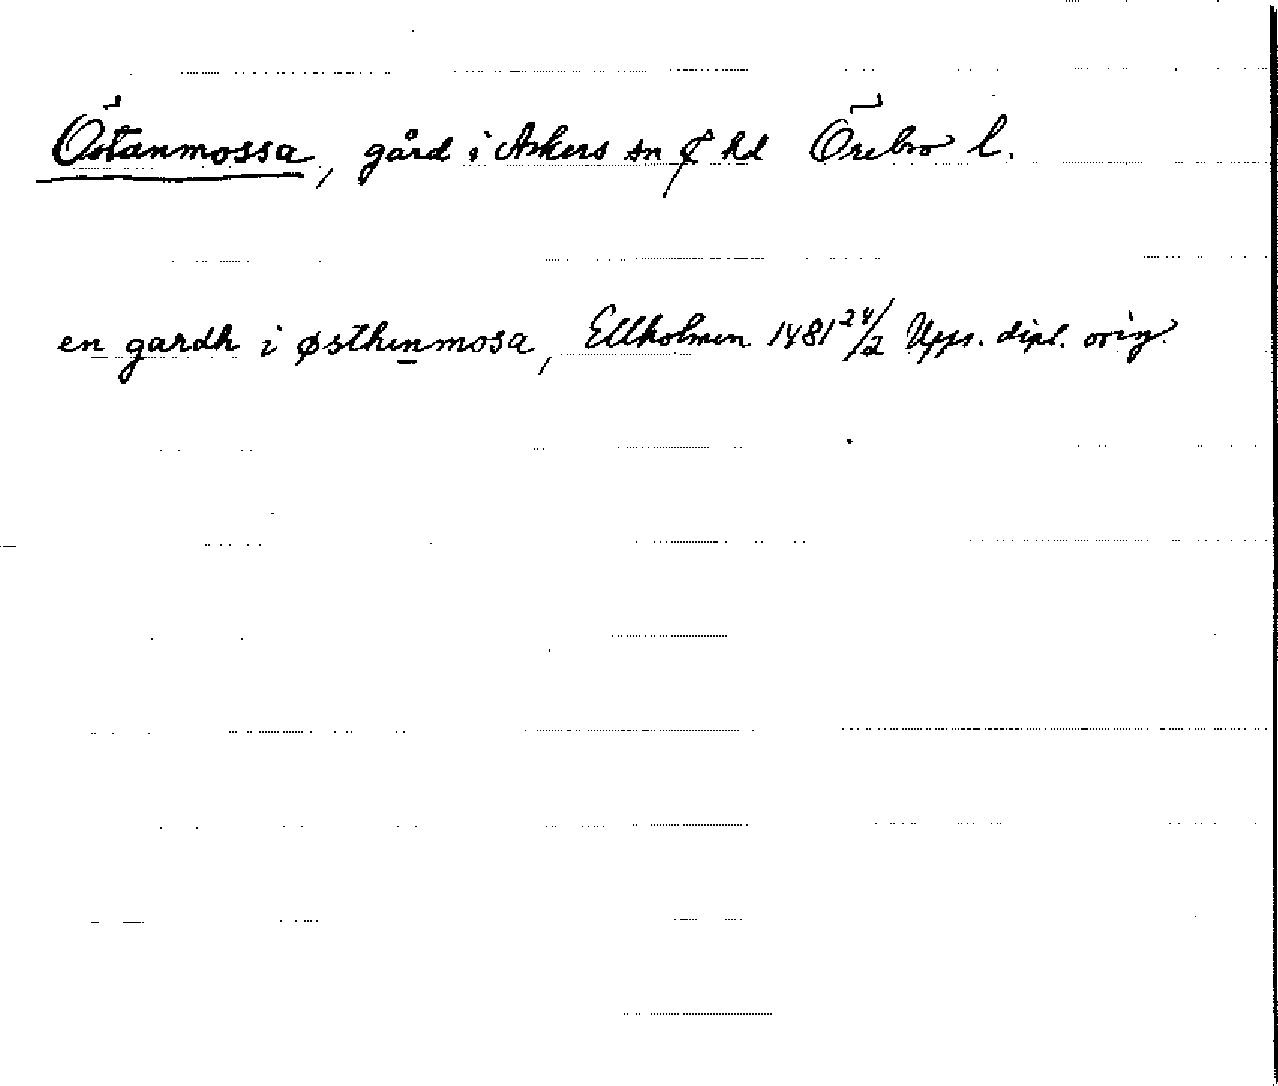 Östanmossa, gård i Askers sn & hd Örebro l.
en gardh i østhenmosa, Ellholmen 1481 24/2 Upps. dipl. orig.